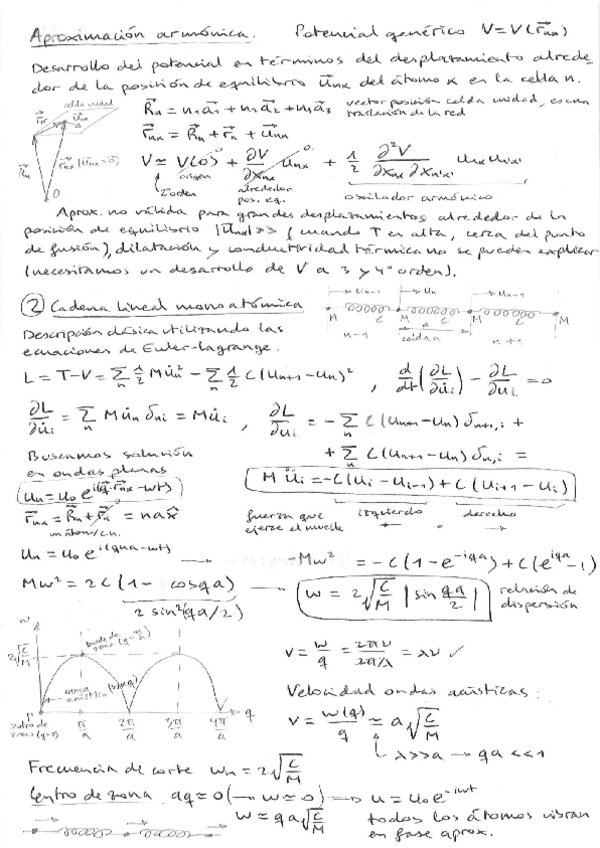 Aproximación armónica. Potencial genérico V=V(r⃗nα)
Desarrollo del potencial en términos del desplazamiento alrede-
dor de la posición de equilibrio u⃗nα del átomo α en la celda n.
celda unidad
R⃗n = n₁a⃗₁ + n₂a⃗₂ + n₃a⃗₃ vector posición celda unidad, es una
traslación de la red
r⃗nα = R⃗n + r⃗α + u⃗nα
V ≃ V(0) + ∂V/∂xnα unα + 1/2 ∂²V/∂xnα ∂xn'α' unα un'α'
origen alrededor pos. eq. oscilador armónico
Aprox. no válida para grandes desplazamientos alrededor de la
posición de equilibrio |u⃗nα|>> (cuando T es alta, cerca del punto
de fusión), dilatación y conductividad térmica no se pueden explicar
(necesitamos un desarrollo de V a 3 y 4º orden).
② Cadena lineal monoatómica
un-1 un un+1
M C M C M C M
n-1 a n+1
Descripción clásica utilizando las
ecuaciones de Euler-Lagrange.
L = T-V = Σn 1/2 M u̇n² - Σn 1/2 C(un+1-un)² , d/dt(∂L/∂u̇i) - ∂L/∂ui = 0
∂L/∂u̇i = Σn M u̇n δni = M u̇i , ∂L/∂ui = -Σn C(un+1-un) δn+1,i +
+ Σn C(un+1-un) δn,i =
Buscamos solución
en ondas planas
M üi = -C(ui - ui-1) + C(ui+1 - ui)
un = u0 e^i(q⃗·r⃗nα-wt)
fuerza que ejerce el muelle izquierdo derecho
r⃗nα = R⃗n + r⃗α = nax̂
un = u0 e^i(qna-wt) → -Mw² = -C(1-e^-iqa) + C(e^iqa-1)
Mw² = 2C(1-cosqa) → w = 2√(C/M) |sin qa/2| relación de
dispersión
2 sin²(qa/2)
w
2√(C/M)
borde de zona (q=π/a)
Γ π/a 2π/a 3π/a 4π/a q
v = w/q = 2πν/(2π/λ) = λν ✓
Velocidad ondas acústicas:
v = w(q)/q ≃ a√(C/M)
λ>>a → qa<<1
Frecuencia de corte wm = 2√(C/M)
Centro de zona aq≃0 (→ w≃0) → u = u0e^-iwt
w ≃ qa√(C/M) todos los átomos vibran
en fase aprox.